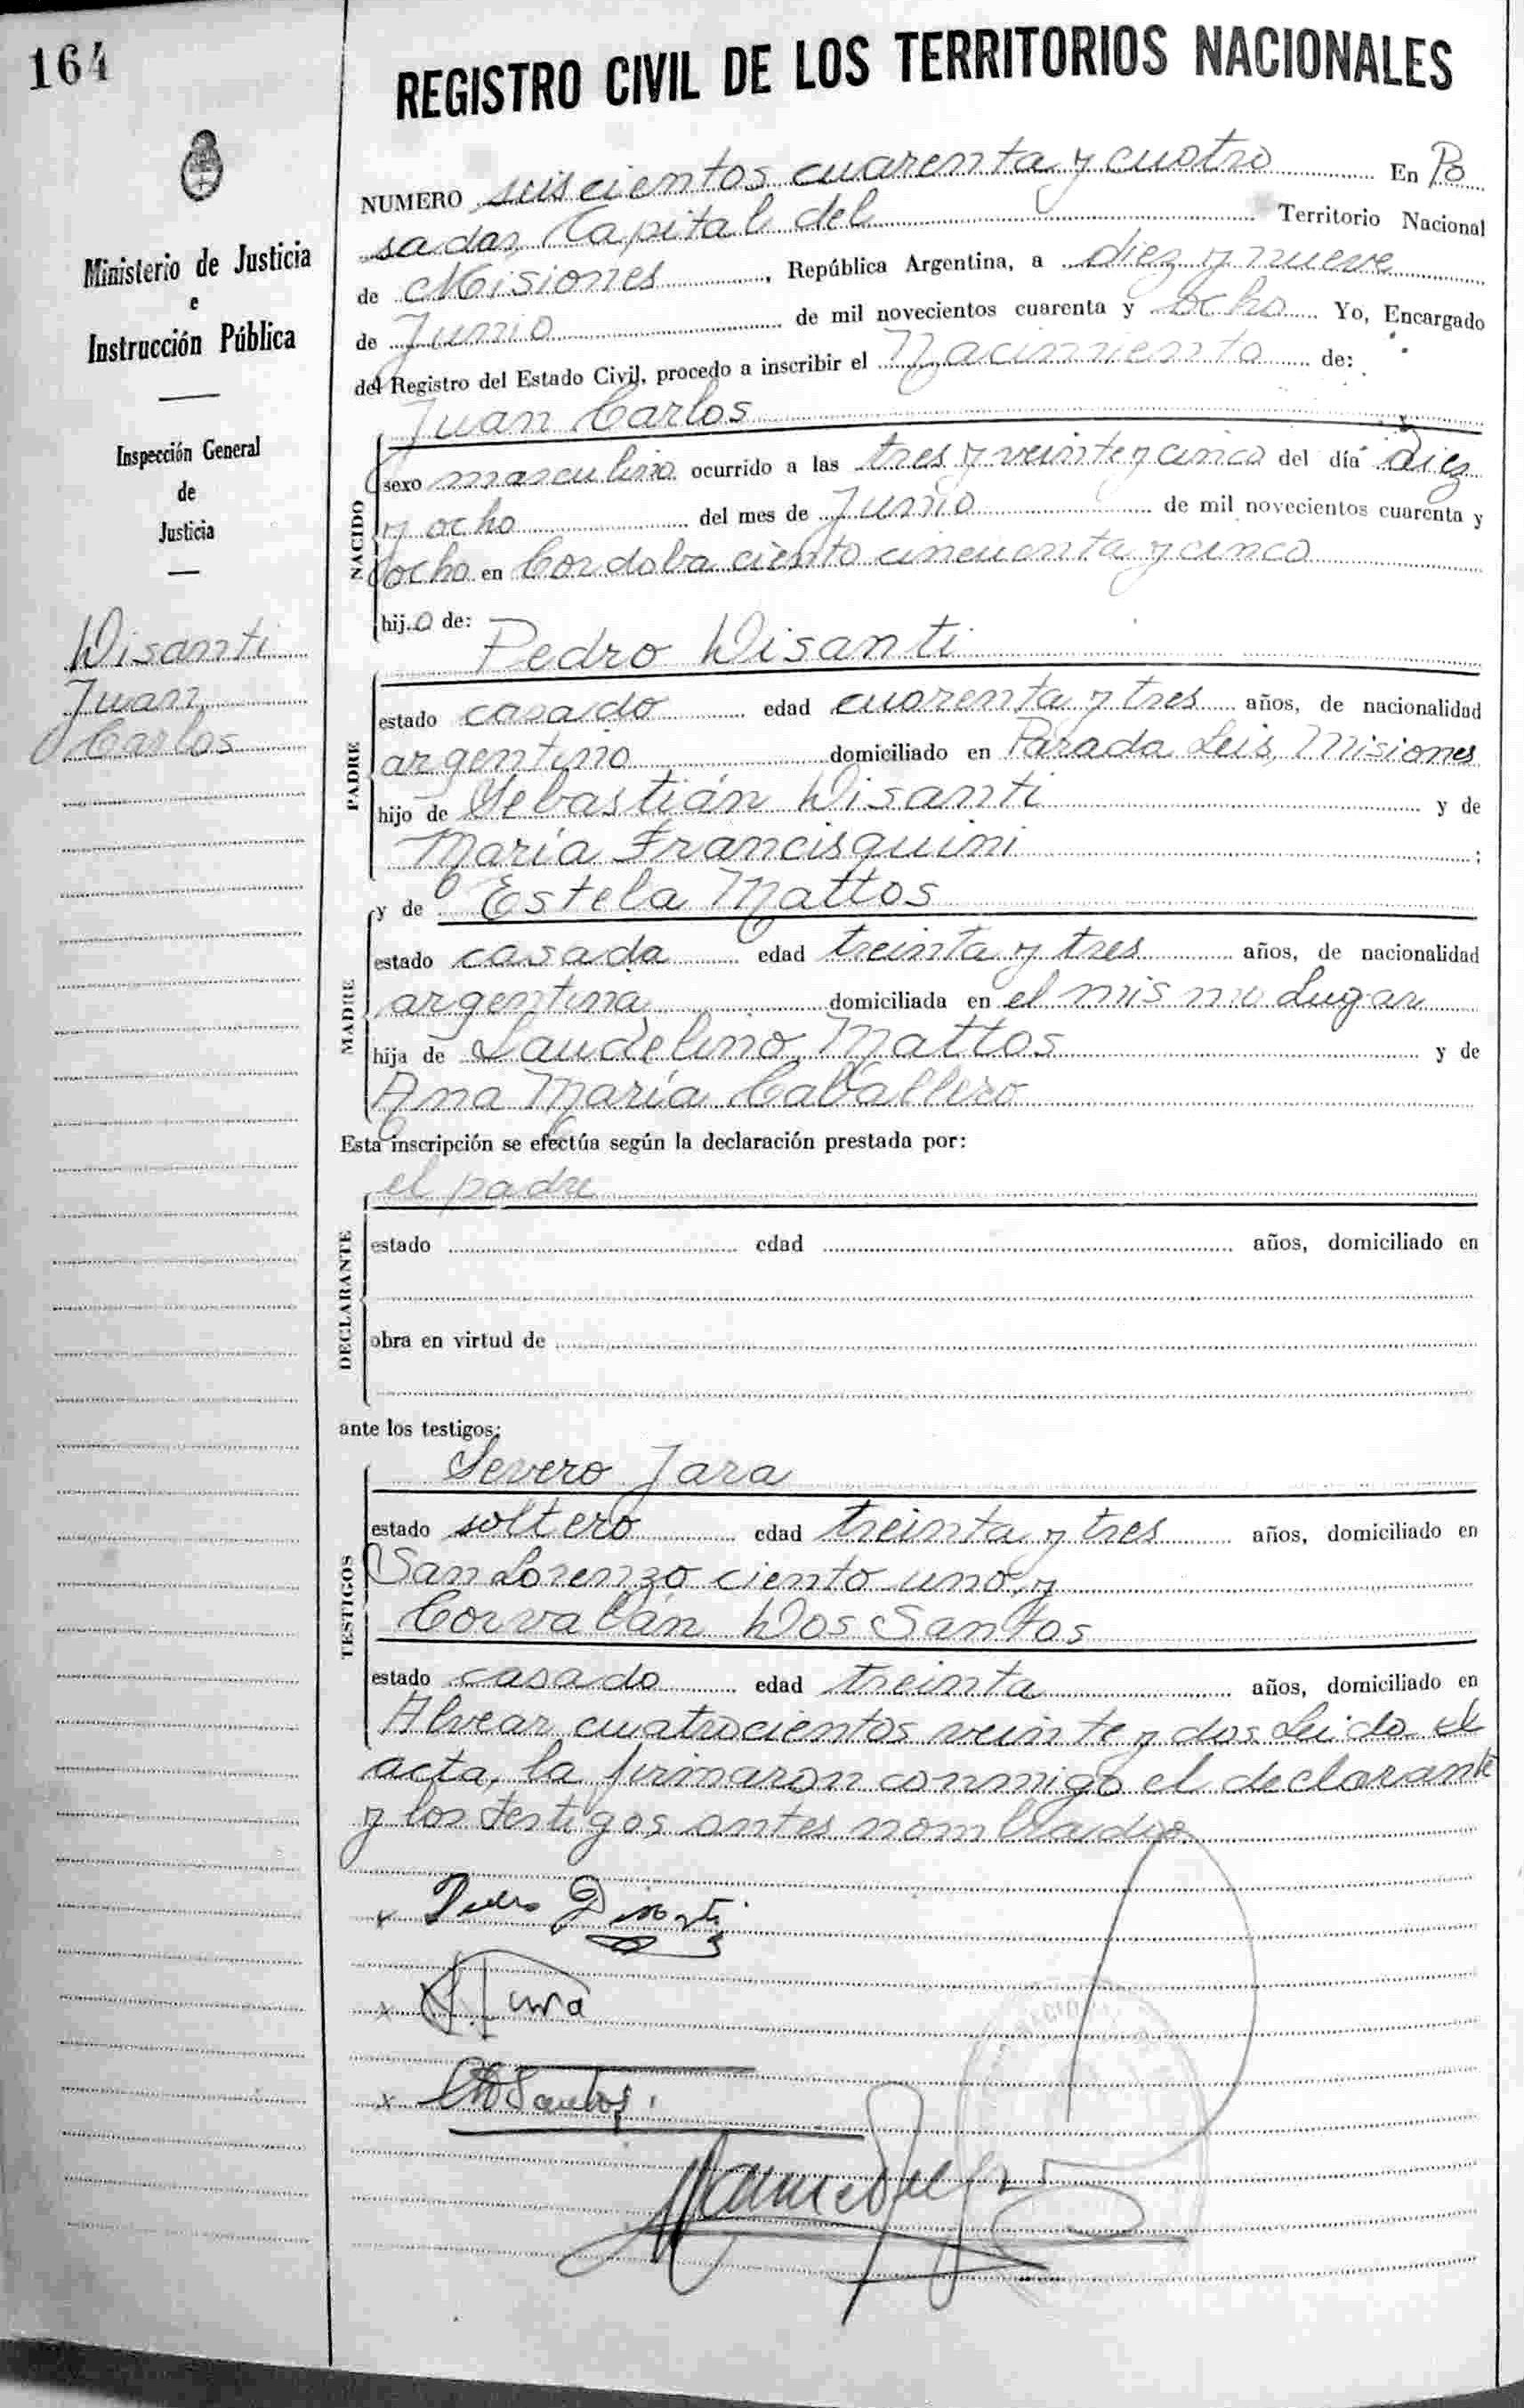 164
REGISTRO CIVIL DE LOS TERRITORIOS NACIONALES
Ministerio de Justicia
e
Instrucción Pública
Inspección General
de
Justicia
Disanti
Juan
Carlos
NUMERO seiscientos cuarenta y cuatro En Po
sadas, Capital del Territorio Nacional
de Misiones, República Argentina, a diez y nueve
de Junio de mil novecientos cuarenta y ocho Yo, Encargado
del Registro del Estado Civil, procedo a inscribir el Nacimiento de:
Juan Carlos
NACIDO
sexo masculino ocurrido a las tres y veinte y cinco del día diez
y ocho del mes de Junio de mil novecientos cuarenta y
ocho en Cordoba ciento cincuenta y cinco
hijo de:
Pedro Disanti
PADRE
estado casado edad cuarenta y tres años, de nacionalidad
argentino domiciliado en Parada Leis, Misiones
hijo de Sebastián Disanti y de
María Francisquini;
y de Estela Mattos
MADRE
estado casada edad treinta y tres años, de nacionalidad
argentina domiciliada en el mismo Lugar
hija de Laudelino Mattos y de
Ana María Caballero
Esta inscripción se efectúa según la declaración prestada por:
el padre
DECLARANTE
estado edad años, domiciliado en
obra en virtud de
ante los testigos:
Severo Jara
TESTIGOS
estado soltero edad treinta y tres años, domiciliado en
San Lorenzo ciento uno, y
Corvalán Dos Santos
estado casado edad treinta años, domiciliado en
Alvear cuatrocientos veinte y dos. Leido el
acta, la firmaron conmigo el declarante
y los testigos antes nombrados.
x Pedro Disanti
x Jara
x Santos